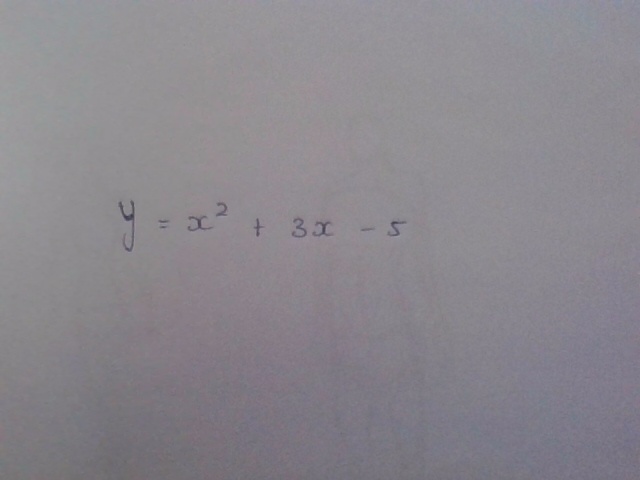 y = x² + 3x - 5